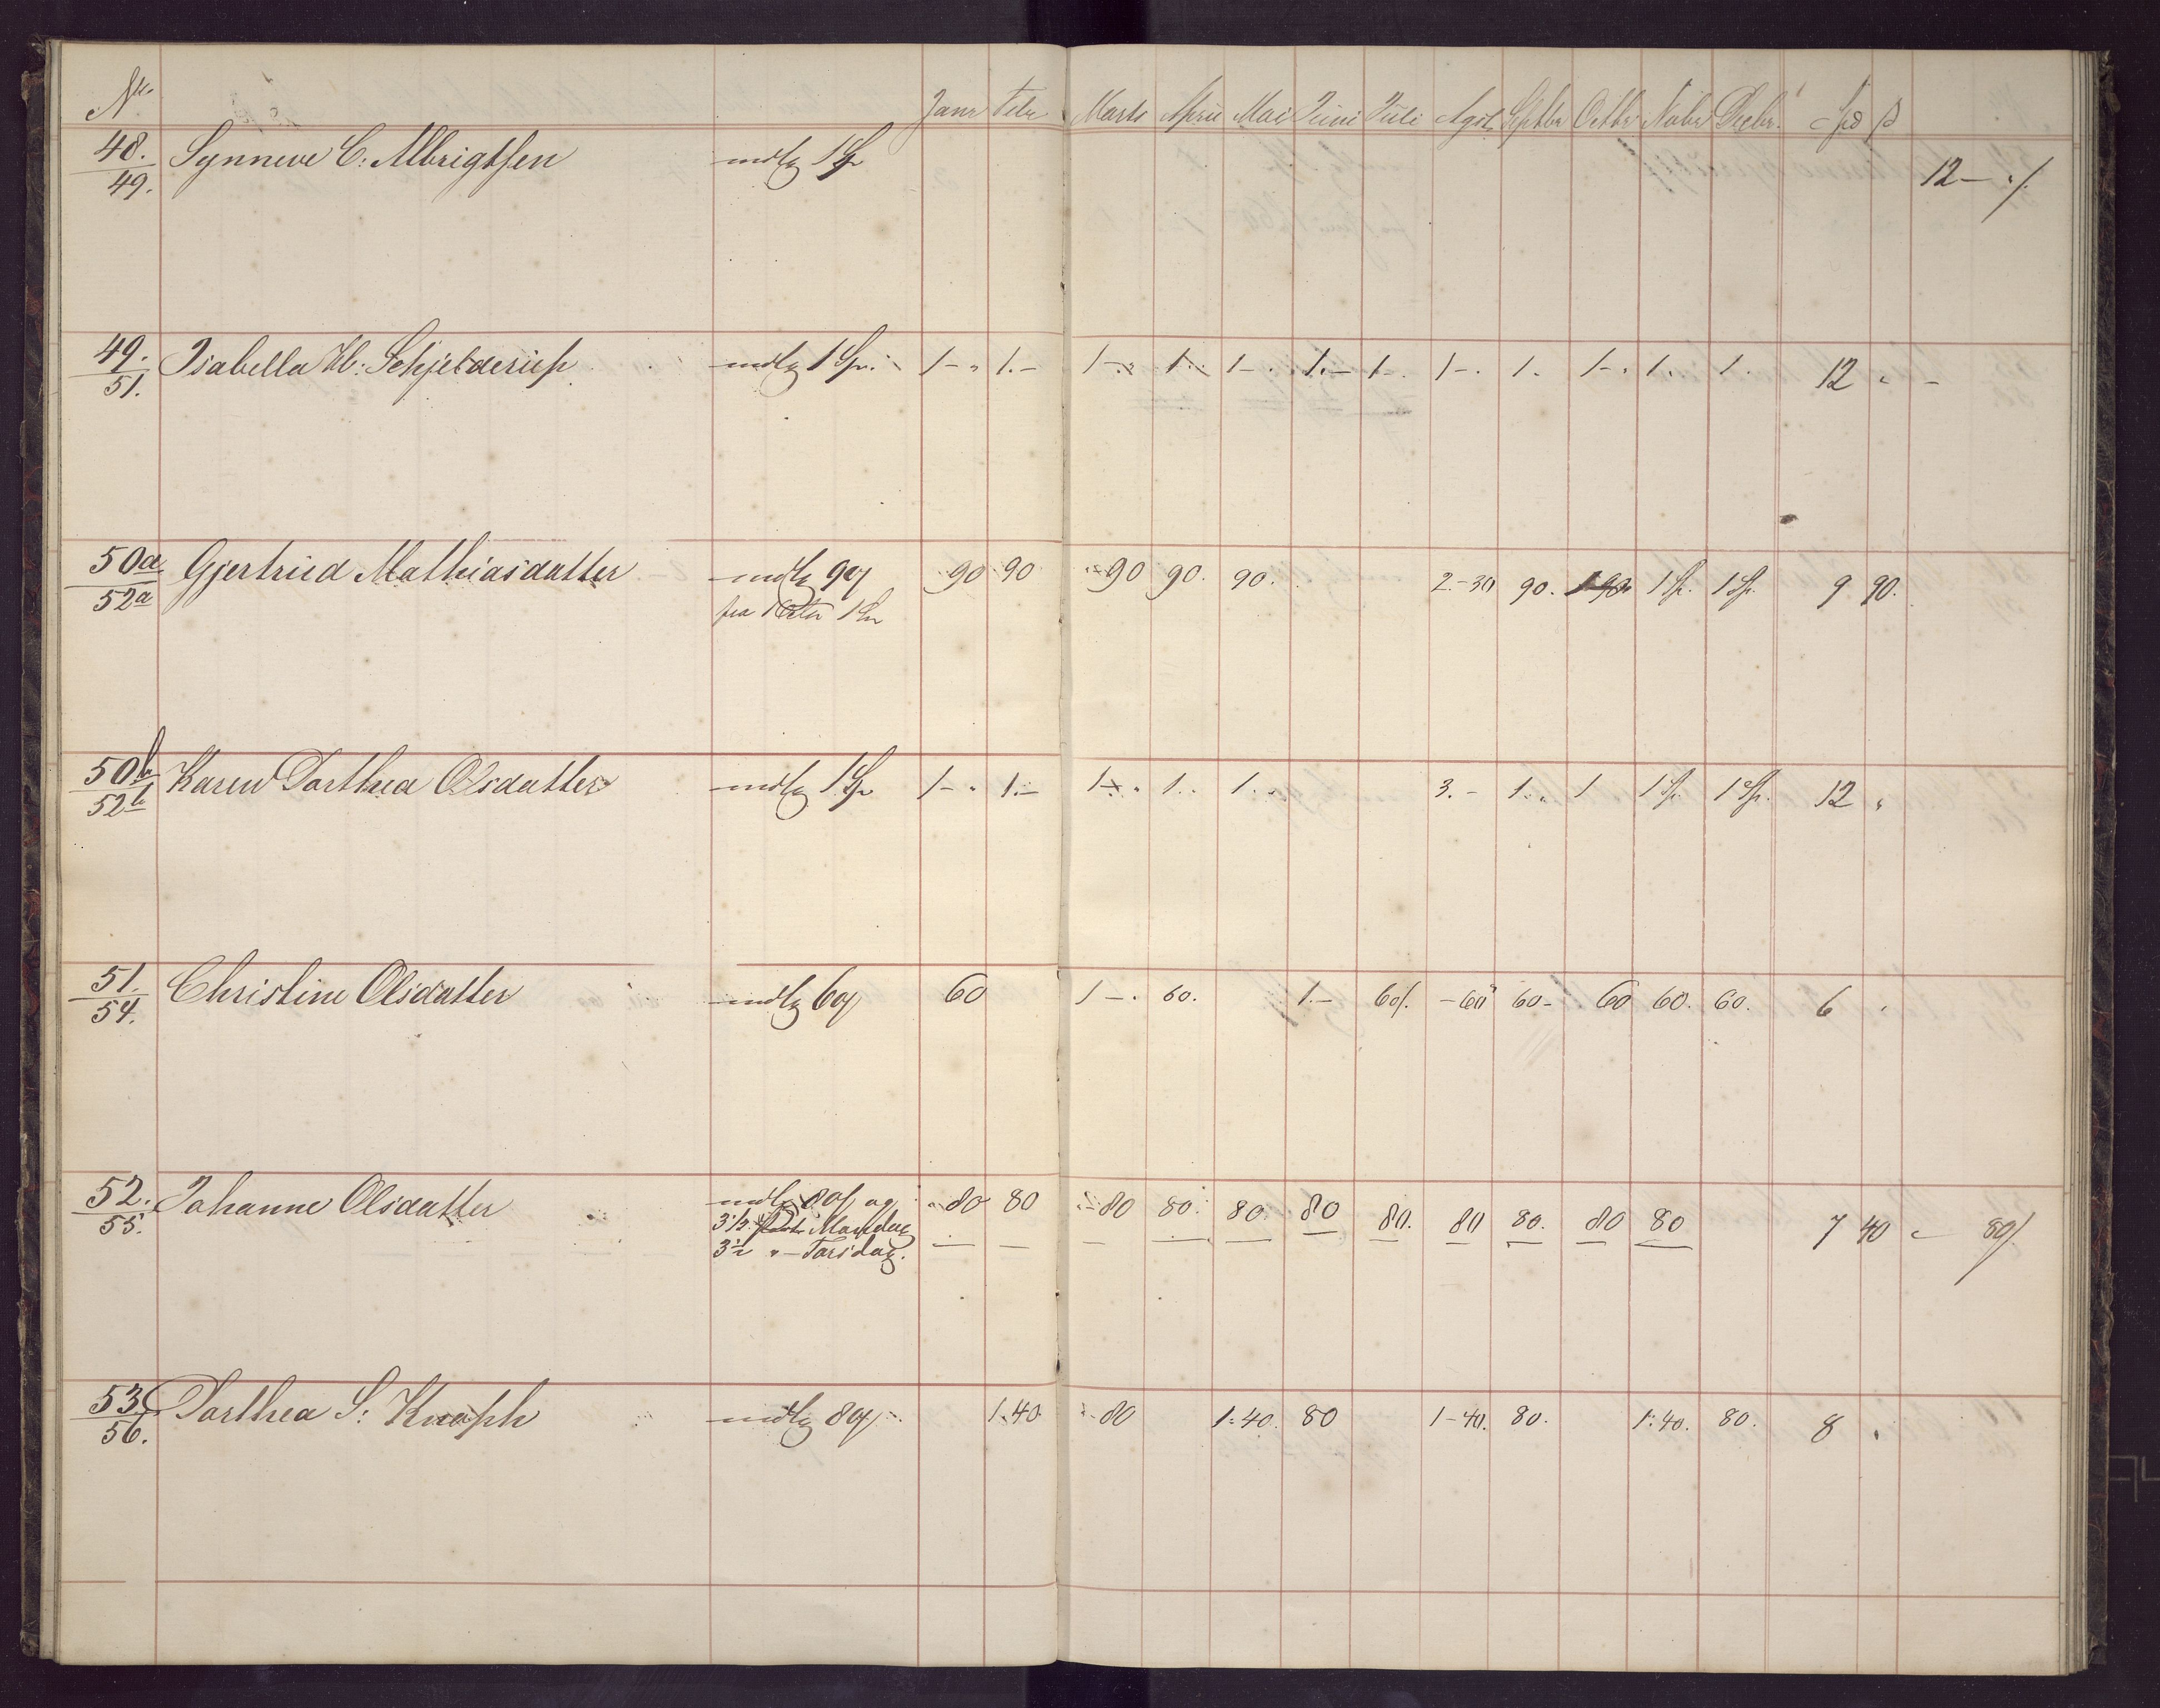 No. Janr Febr Marts April Mai Juni Juli Agst Septbr Octbr Novbr Decbr. Spd ß
48. Synneve C: Albrigtsen mdlg 1 Sp 12 – "/.
49.
49. Isabella M: Schjelderup mdlg 1 Sp. 1 – " 1. – 1 – " 1 " 1 – . 1. – 1 – . 1 – . 1. 1 – . 1. 1. 12 " –
51.
50a Gjertrud Mathiasdatter mdlg 90ß 90 90 90 90. 90. 2. – 30 90. 1 Sp. 1 Sp. 9 90.
52a fra 1 Octbr 1 Sp
50b Karen Dorthea Olsdatter mdlg 1 Sp 1 – . 1. – 1 – . 1 . . 1 . . 3. – 1 . " 1 1 Sp. 1 Sp. 12 "
52b
51. Christine Olsdatter mdlg 60ß 60 1 – . 60. 1. – 60ß. – 60 60 – 60 60. 60. 6 "
54.
52. Johanne Olsdatter mdlg 80ß og 80 80 80 80. 80. 80 80. 80 80. 80 80 7 40 80/.
55. 3½ Mandag
3½ " – Torsdag.
53. Dorthea S: Knaph mdlg 80ß 1.40 80 1:40. 80 1 – 40. 80. 1:40. 80. 8 "
56.